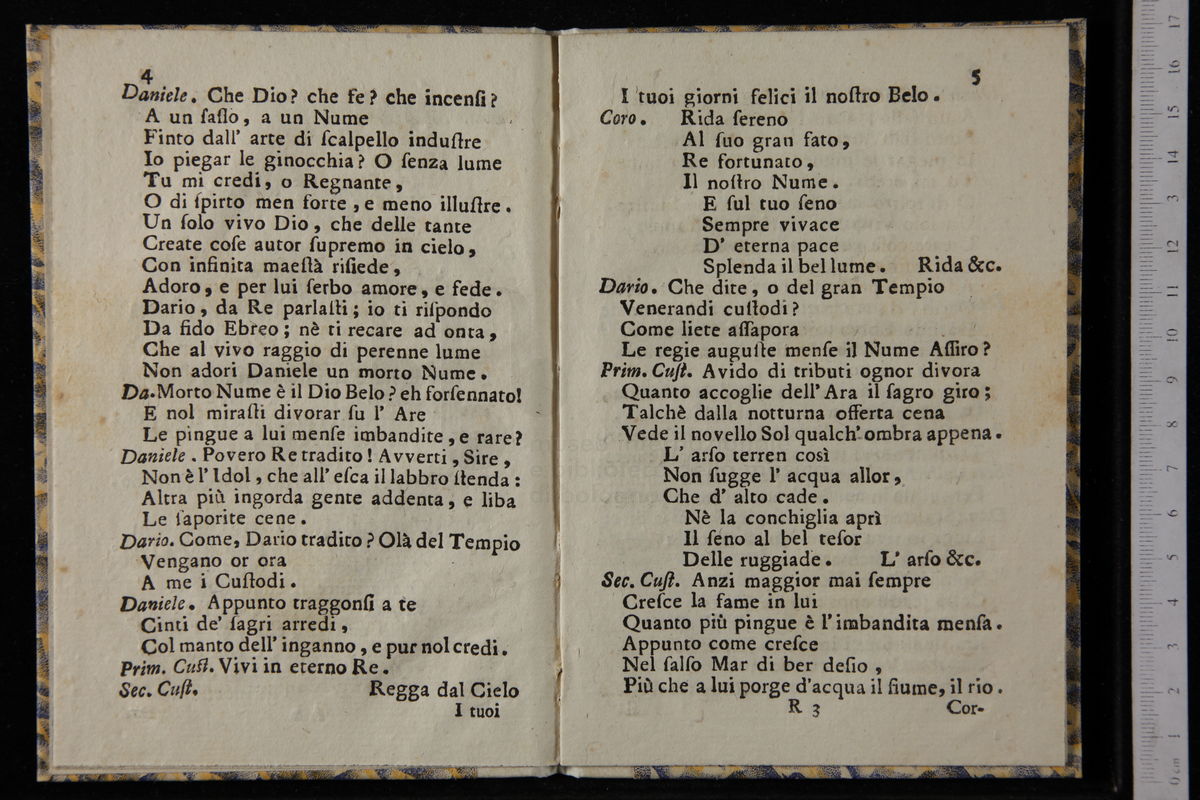 4
Daniele. Che Dio? che fe? che incenſi?
A un ſaſſo, a un Nume
Finto dall' arte di ſcalpello induſtre
Io piegar le ginocchia? O ſenza lume
Tu mi credi, o Regnante,
O di ſpirto men forte, e meno illuſtre.
Un ſolo vivo Dio, che delle tante
Create coſe autor ſupremo in cielo,
Con infinita maeſtà riſiede,
Adoro, e per lui ſerbo amore, e fede.
Dario, da Re parlaſti; io ti riſpondo
Da fido Ebreo; nè ti recare ad onta,
Che al vivo raggio di perenne lume
Non adori Daniele un morto Nume.
Da. Morto Nume è il Dio Belo? eh forſennato!
E nol miraſti divorar ſu l' Are
Le pingue a lui menſe imbandite, e rare?
Daniele. Povero Re tradito! Avverti, Sire,
Non è l' Idol, che all' eſca il labbro ſtenda:
Altra più ingorda gente addenta, e liba
Le ſaporite cene.
Dario. Come, Dario tradito? Olà del Tempio
Vengano or ora
A me i Cuſtodi.
Daniele. Appunto traggonſi a te
Cinti de' ſagri arredi,
Col manto dell' inganno, e pur nol credi.
Prim. Cuſt. Vivi in eterno Re.
Sec. Cuſt. Regga dal Cielo
I tuoi
5
I tuoi giorni felici il noſtro Belo.
Coro. Rida ſereno
Al ſuo gran fato,
Re fortunato,
Il noſtro Nume.
E ſul tuo ſeno
Sempre vivace
D' eterna pace
Splenda il bel lume. Rida &c.
Dario. Che dite, o del gran Tempio
Venerandi cuſtodi?
Come liete aſſapora
Le regie auguſte menſe il Nume Aſſiro?
Prim. Cuſt. Avido di tributi ognor divora
Quanto accoglie dell' Ara il ſagro giro;
Talchè dalla notturna offerta cena
Vede il novello Sol qualch' ombra appena.
L' arſo terren così
Non ſugge l' acqua allor,
Che d' alto cade.
Nè la conchiglia aprì
Il ſeno al bel teſor
Delle ruggiade. L' arſo &c.
Sec. Cuſt. Anzi maggior mai ſempre
Creſce la fame in lui
Quanto più pingue è l' imbandita menſa.
Appunto come creſce
Nel ſalſo Mar di ber deſio,
Più che a lui porge d'acqua il fiume, il rio.
R 3 Cor-
17
16
15
14
13
12
11
10
9
8
7
6
5
4
3
2
1
0 cm